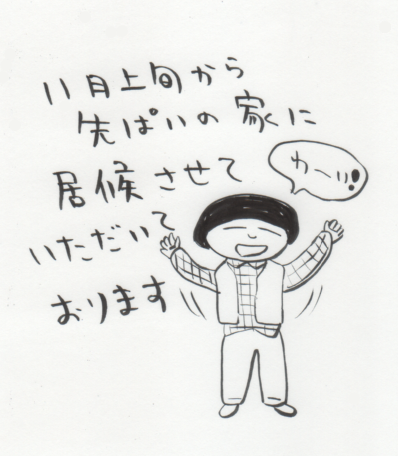 11月上旬から
先ぱいの家に
居候させて
いただいて
おります
わーい!